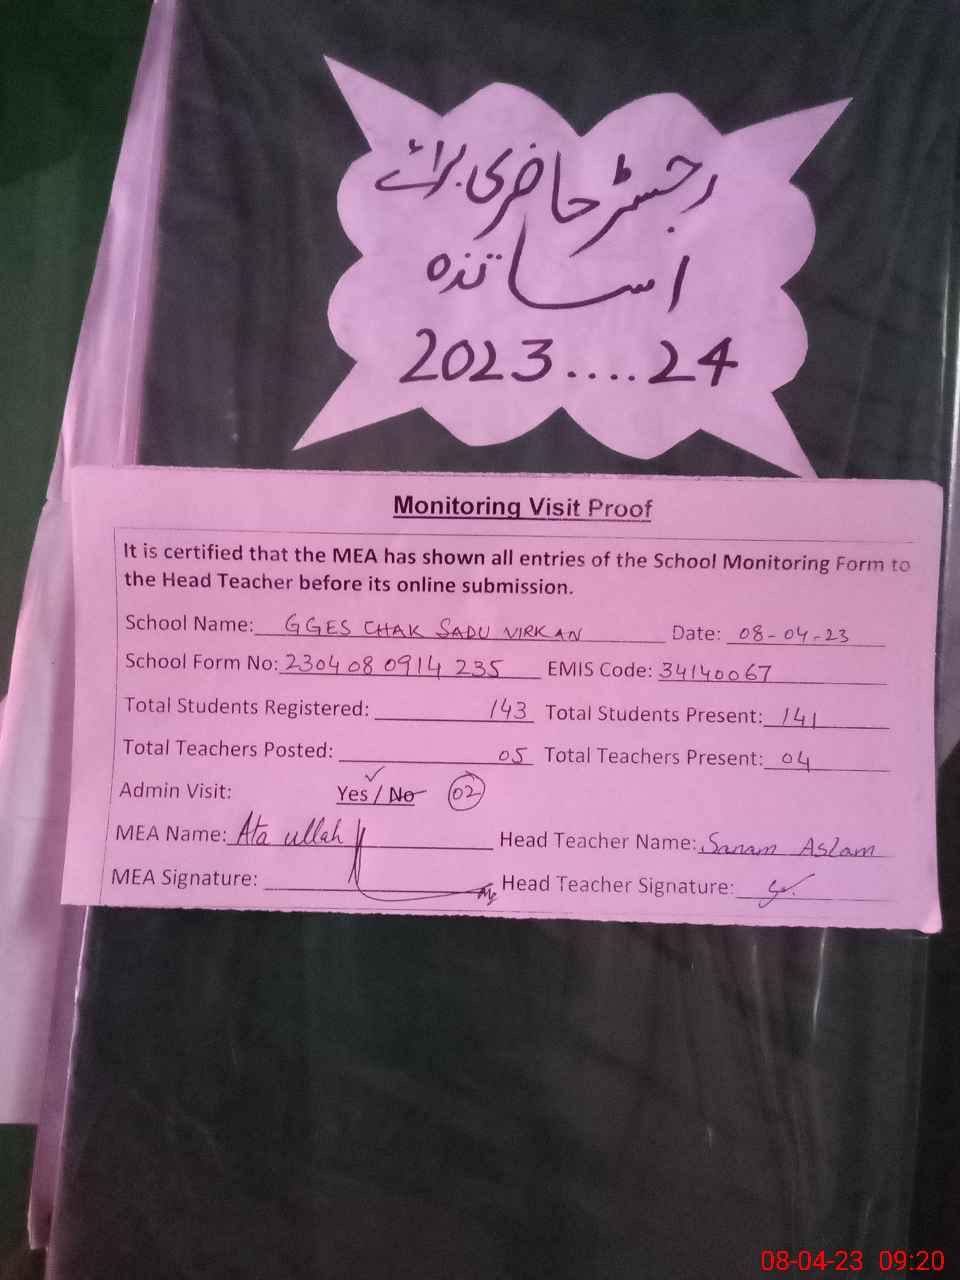 رجسٹر حاضری برائے
اساتذہ
2023....24
Monitoring Visit Proof
It is certified that the MEA has shown all entries of the School Monitoring Form to
the Head Teacher before its online submission.
School Name: GGES CHAK SADU VIRKAN Date: 08-04-23
School Form No: 2304080914235 EMIS Code: 34140067
Total Students Registered: 143 Total Students Present: 141
Total Teachers Posted: 05 Total Teachers Present: 04
Admin Visit: Yes / No 02
MEA Name: Ata ullah Head Teacher Name: Sanam Aslam
MEA Signature: Head Teacher Signature:
08-04-23 09:20